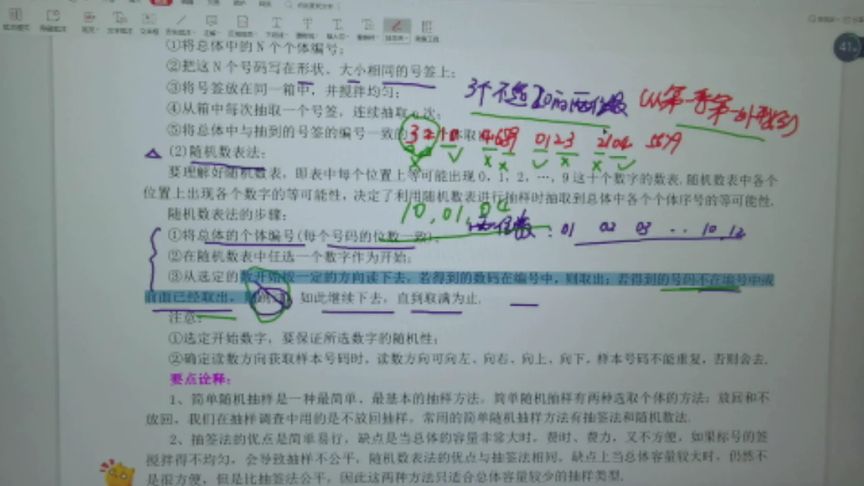 ①将总体中的N个个体编号；
②把这N个号码写在形状、大小相同的号签上；
③将号签放在同一箱中，并搅拌均匀；
④从箱中每次抽取一个号签，连续抽取n次；
⑤将总体中与抽到的号签的编号一致的
3210 4689 0123 2104 5679
(2)随机数表法：
要理解好随机数表，即表中每个位置上等可能出现0，1，2，…，9这十个数字的数表.随机数表中各个
位置上出现各个数字的等可能性，决定了利用随机数表进行抽样时抽取到总体中各个个体序号的等可能性.
随机数表法的步骤：
10，01，04
①将总体的个体编号(每个号码的位数一致)；
：01 02 03 ‥ 10 12
②在随机数表中任选一个数字作为开始；
③从选定的数开始按一定的方向读下去，若得到的数码在编号中，则取出；若得到的号码不在编号中或
前面已经取出，则跳过，如此继续下去，直到取满为止.
注意：
①选定开始数字，要保证所选数字的随机性；
②确定读数方向获取样本号码时，读数方向可向左、向右、向上、向下，样本号码不能重复，否则舍去.
要点诠释：
1、简单随机抽样是一种最简单、最基本的抽样方法，简单随机抽样有两种选取个体的方法：放回和不
放回，我们在抽样调查中用的是不放回抽样，常用的简单随机抽样方法有抽签法和随机数法.
2、抽签法的优点是简单易行，缺点是当总体的容量非常大时，费时、费力，又不方便，如果标号的签
搅拌得不均匀，会导致抽样不公平，随机数表法的优点与抽签法相同，缺点上当总体容量较大时，仍然不
是很方便，但是比抽签法公平，因此这两种方法只适合总体容量较少的抽样类型.